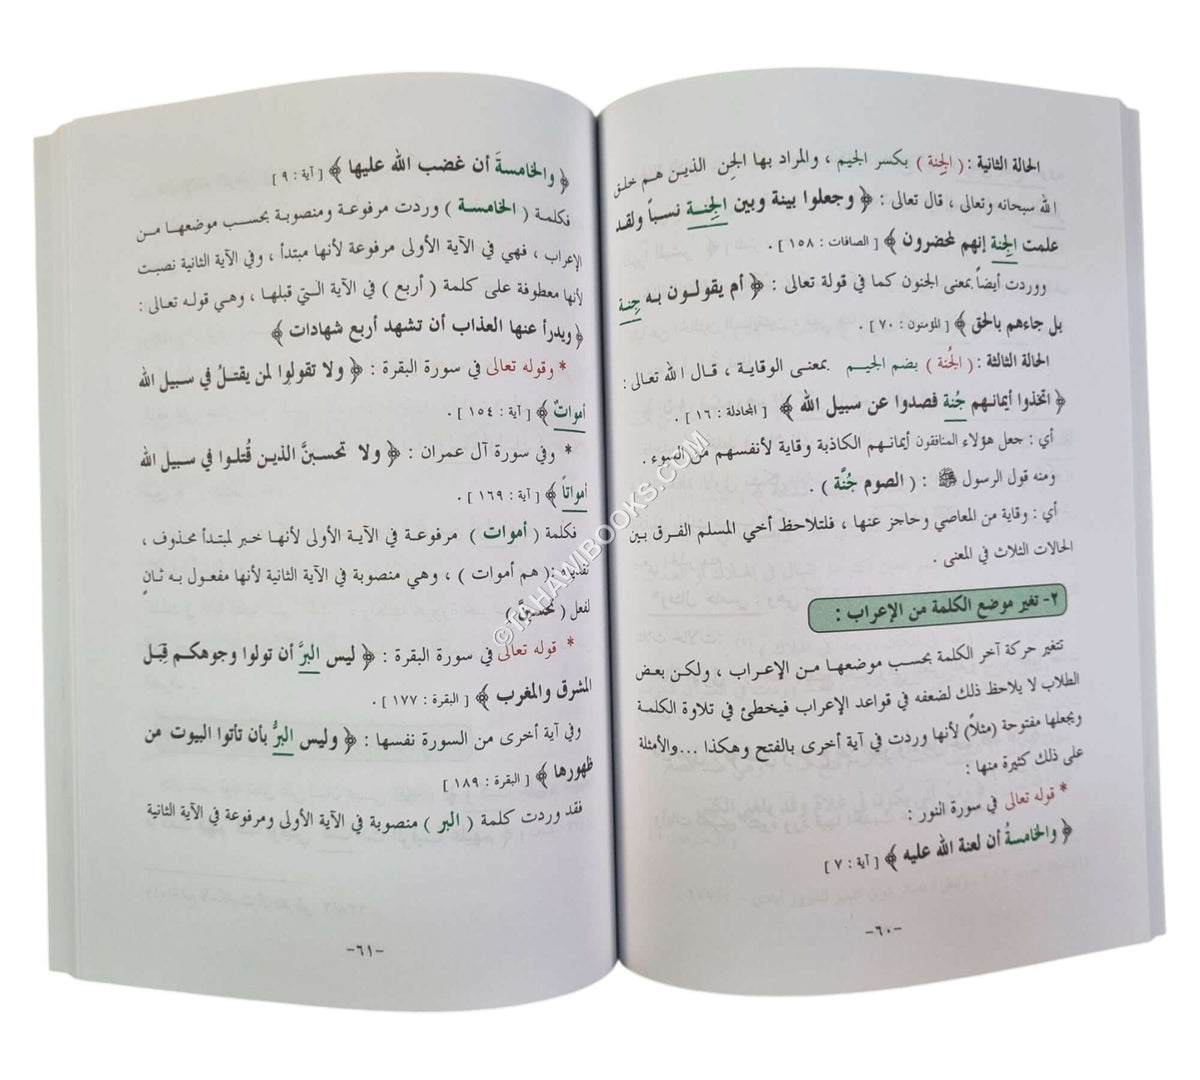 الحالة الثانية : ( الجِنة ) بكسر الجيم ، والمراد بها الجِن الذين هم خلق
الله سبحانه وتعالى ، قال تعالى : ﴿ وجعلوا بينة وبين الجِنة نسباً ولقد
علمت الجِنة إنهم لمحضرون ﴾ [ الصافات : ١٥٨ ] .
ووردت أيضاً بمعنى الجنون كما في قولة تعالى : ﴿ أم يقولون به جِنة
بل جاءهم بالحق ﴾ [ المؤمنون : ٧٠ ] .
الحالة الثالثة : ( الجُنة ) بضم الجيم بمعنى الوقاية ، قال الله تعالى :
﴿ اتخذوا أيمانهم جُنة فصدوا عن سبيل الله ﴾ [ المجادلة : ١٦ ] .
أي : جعل هؤلاء المنافقون أيمانهم الكاذبة وقاية لأنفسهم من السوء .
ومنه قول الرسول ﷺ : ( الصوم جُنَّة ) .
أي : وقاية من المعاصي وحاجز عنها ، فلتلاحظ أخي المسلم الفرق بين
الحالات الثلاث في المعنى .
٢- تغير موضع الكلمة من الإعراب :
تتغير حركة آخر الكلمة بحسب موضعها من الإعراب ، ولكن بعض
الطلاب لا يلاحظ ذلك لضعفه في قواعد الإعراب فيخطئ في تلاوة الكلمة
ويجعلها مفتوحة (مثلاً) لأنها وردت في آية أخرى بالفتح وهكذا ...والأمثلة
على ذلك كثيرة منها :
* قوله تعالى في سورة النور :
﴿ والخامسةُ أن لعنة الله عليه ﴾ [ آية : ٧ ]
-٦٠-
﴿ والخامسةَ أن غضب الله عليها ﴾ [ آية : ٩ ]
فكلمة ( الخامسة ) وردت مرفوعة ومنصوبة بحسب موضعها من
الإعراب ، فهي في الآية الأولى مرفوعة لأنها مبتدأ ، وفي الآية الثانية نصبت
لأنها معطوفة على كلمة ( أربع ) في الآية التي قبلها ، وهي قوله تعالى :
﴿ ويدرأ عنها العذاب أن تشهد أربع شهادات ﴾
* وقوله تعالى في سورة البقرة : ﴿ ولا تقولوا لمن يقتلُ في سبيل الله
أمواتٌ ﴾ [ آية : ١٥٤ ] .
* وفي سورة آل عمران : ﴿ ولا تحسبنَّ الذين قُتلوا في سبيل الله
أمواتاً ﴾ [ آية : ١٦٩ ] .
فكلمة ( أموات ) مرفوعة في الآية الأولى لأنها خبر لمبتدأ محذوف ،
تقديره : ( هم أموات ) ، وهي منصوبة في الآية الثانية لأنها مفعول به ثانٍ
لفعل ( تحسبنَّ )
* قوله تعالى في سورة البقرة : ﴿ ليس البرَّ أن تولوا وجوهكم قِبَل
المشرق والمغرب ﴾ [ البقرة : ١٧٧ ] .
وفي آية أخرى من السورة نفسها : ﴿ وليس البرُّ بأن تأتوا البيوت من
ظهورها ﴾ [ البقرة : ١٨٩ ]
فقد وردت كلمة ( البر ) منصوبة في الآية الأولى ومرفوعة في الآية الثانية
-٦١-
©TAHAWIBOOKS.COM